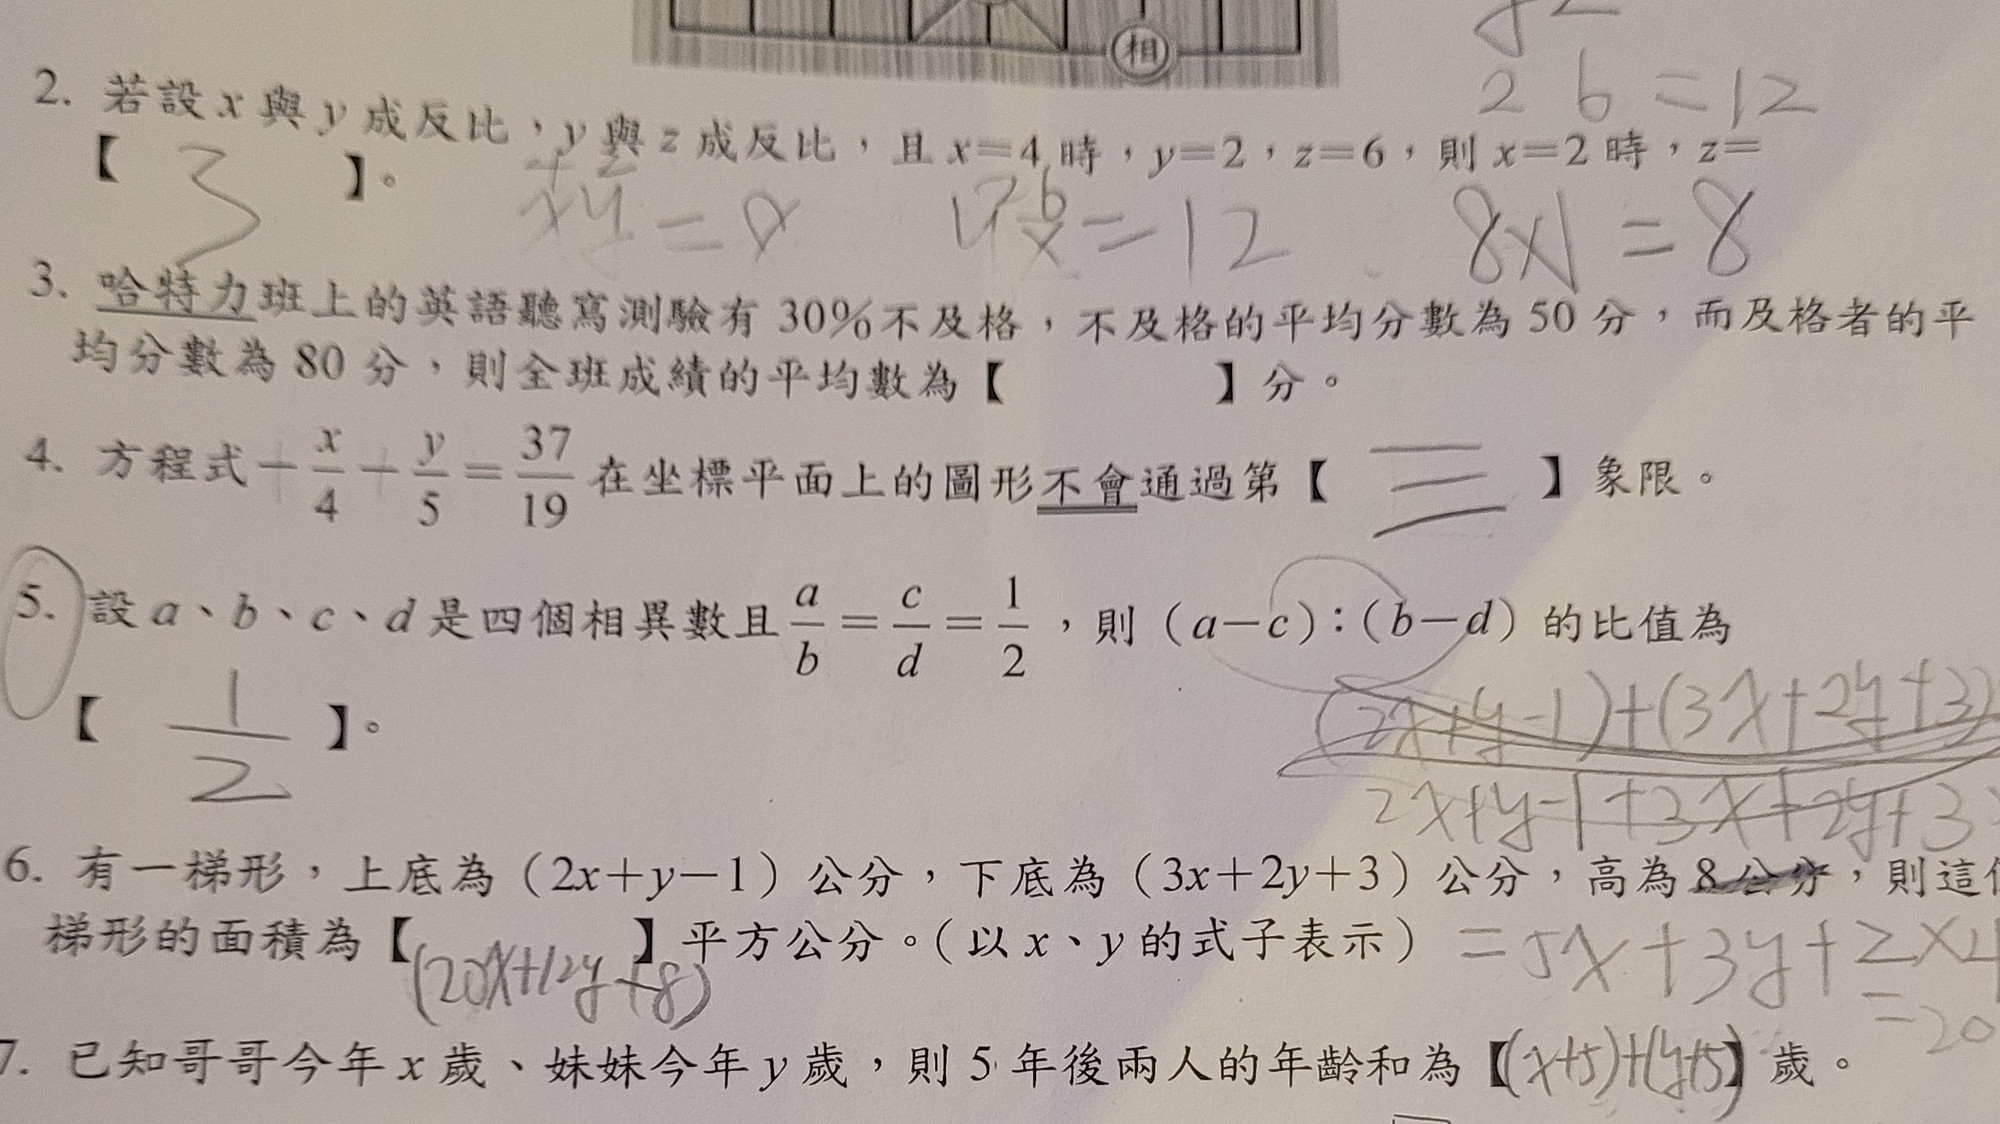 相
2 6 = 12
2. 若設 x 與 y 成反比，y 與 z 成反比，且 x=4 時，y=2，z=6，則 x=2 時，z=
【 3 】。
xy = 8
= 12
8×1 = 8
3. 哈特力班上的英語聽寫測驗有 30%不及格，不及格的平均分數為 50 分，而及格者的平
均分數為 80 分，則全班成績的平均數為【 】分。
4. 方程式 + x/4 + y/5 = 37/19 在坐標平面上的圖形不會通過第【 三 】象限。
5. 設 a、b、c、d 是四個相異數且 a/b = c/d = 1/2，則（a－c）：（b－d）的比值為
【 1/2 】。
(2x+y-1)+(3x+2y+3)
2x+y-1+3x+2y+3
6. 有一梯形，上底為（2x+y－1）公分，下底為（3x+2y+3）公分，高為 8 公分，則這
梯形的面積為【 】平方公分。（以 x、y 的式子表示）
(20x+12y+8)
=5x+3y+2×4
=20
7. 已知哥哥今年 x 歲、妹妹今年 y 歲，則 5 年後兩人的年齡和為【(x+5)+(y+5)】歲。